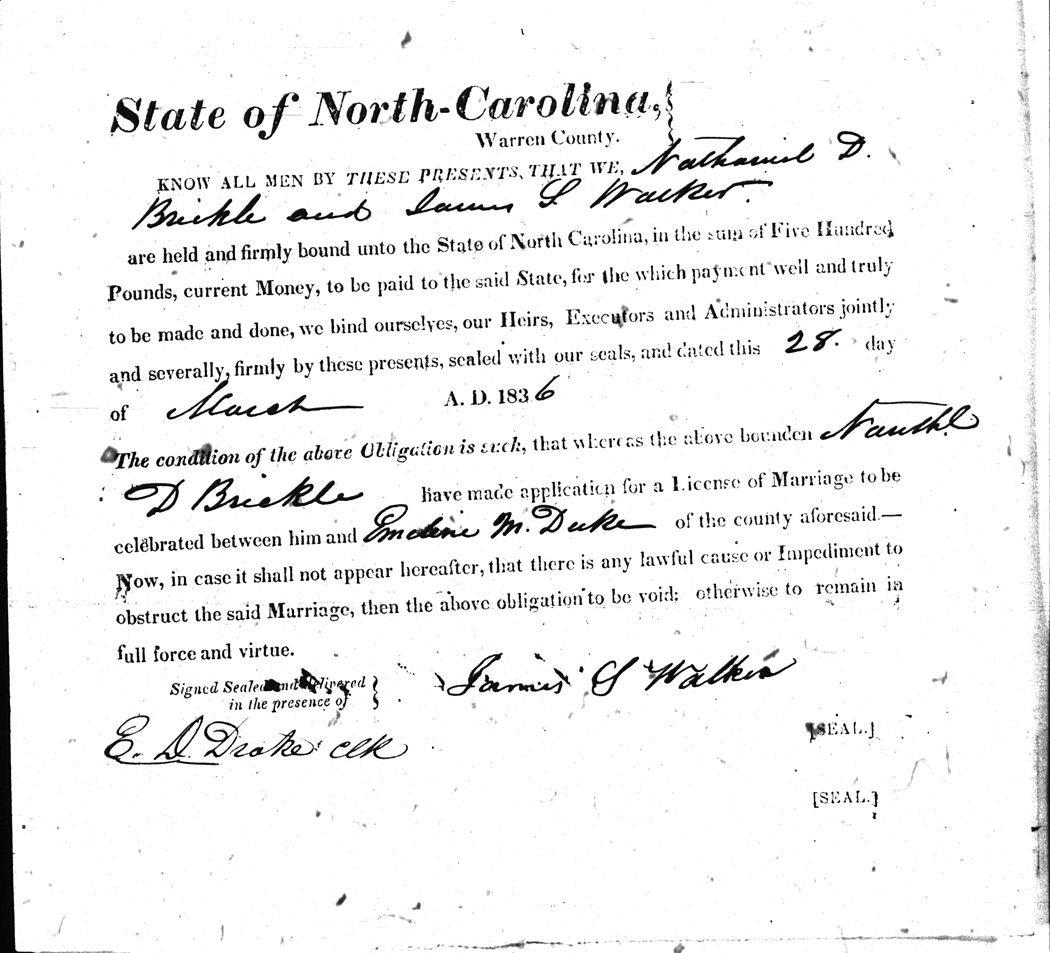 State of North-Carolina,
Warren County.
KNOW ALL MEN BY THESE PRESENTS, THAT WE, Nathaniel D.
Brickle and James S. Walker.
are held and firmly bound unto the State of North Carolina, in the sum of Five Hundred
Pounds, current Money, to be paid to the said State, for the which payment well and truly
to be made and done, we bind ourselves, our Heirs, Executors and Administrators jointly
and severally, firmly by these presents, sealed with our seals, and dated this 28. day
of March A. D. 1836
The condition of the above Obligation is such, that whereas the above bounden Nauthl.
D Brickle have made application for a License of Marriage to be
celebrated between him and Emeline M. Duke of the county aforesaid.—
Now, in case it shall not appear hereafter, that there is any lawful cause or Impediment to
obstruct the said Marriage, then the above obligation to be void; otherwise to remain in
full force and virtue.
Signed Sealed and delivered
in the presence of
James S Walker
E. D. Drake clk
[SEAL.]
[SEAL.]